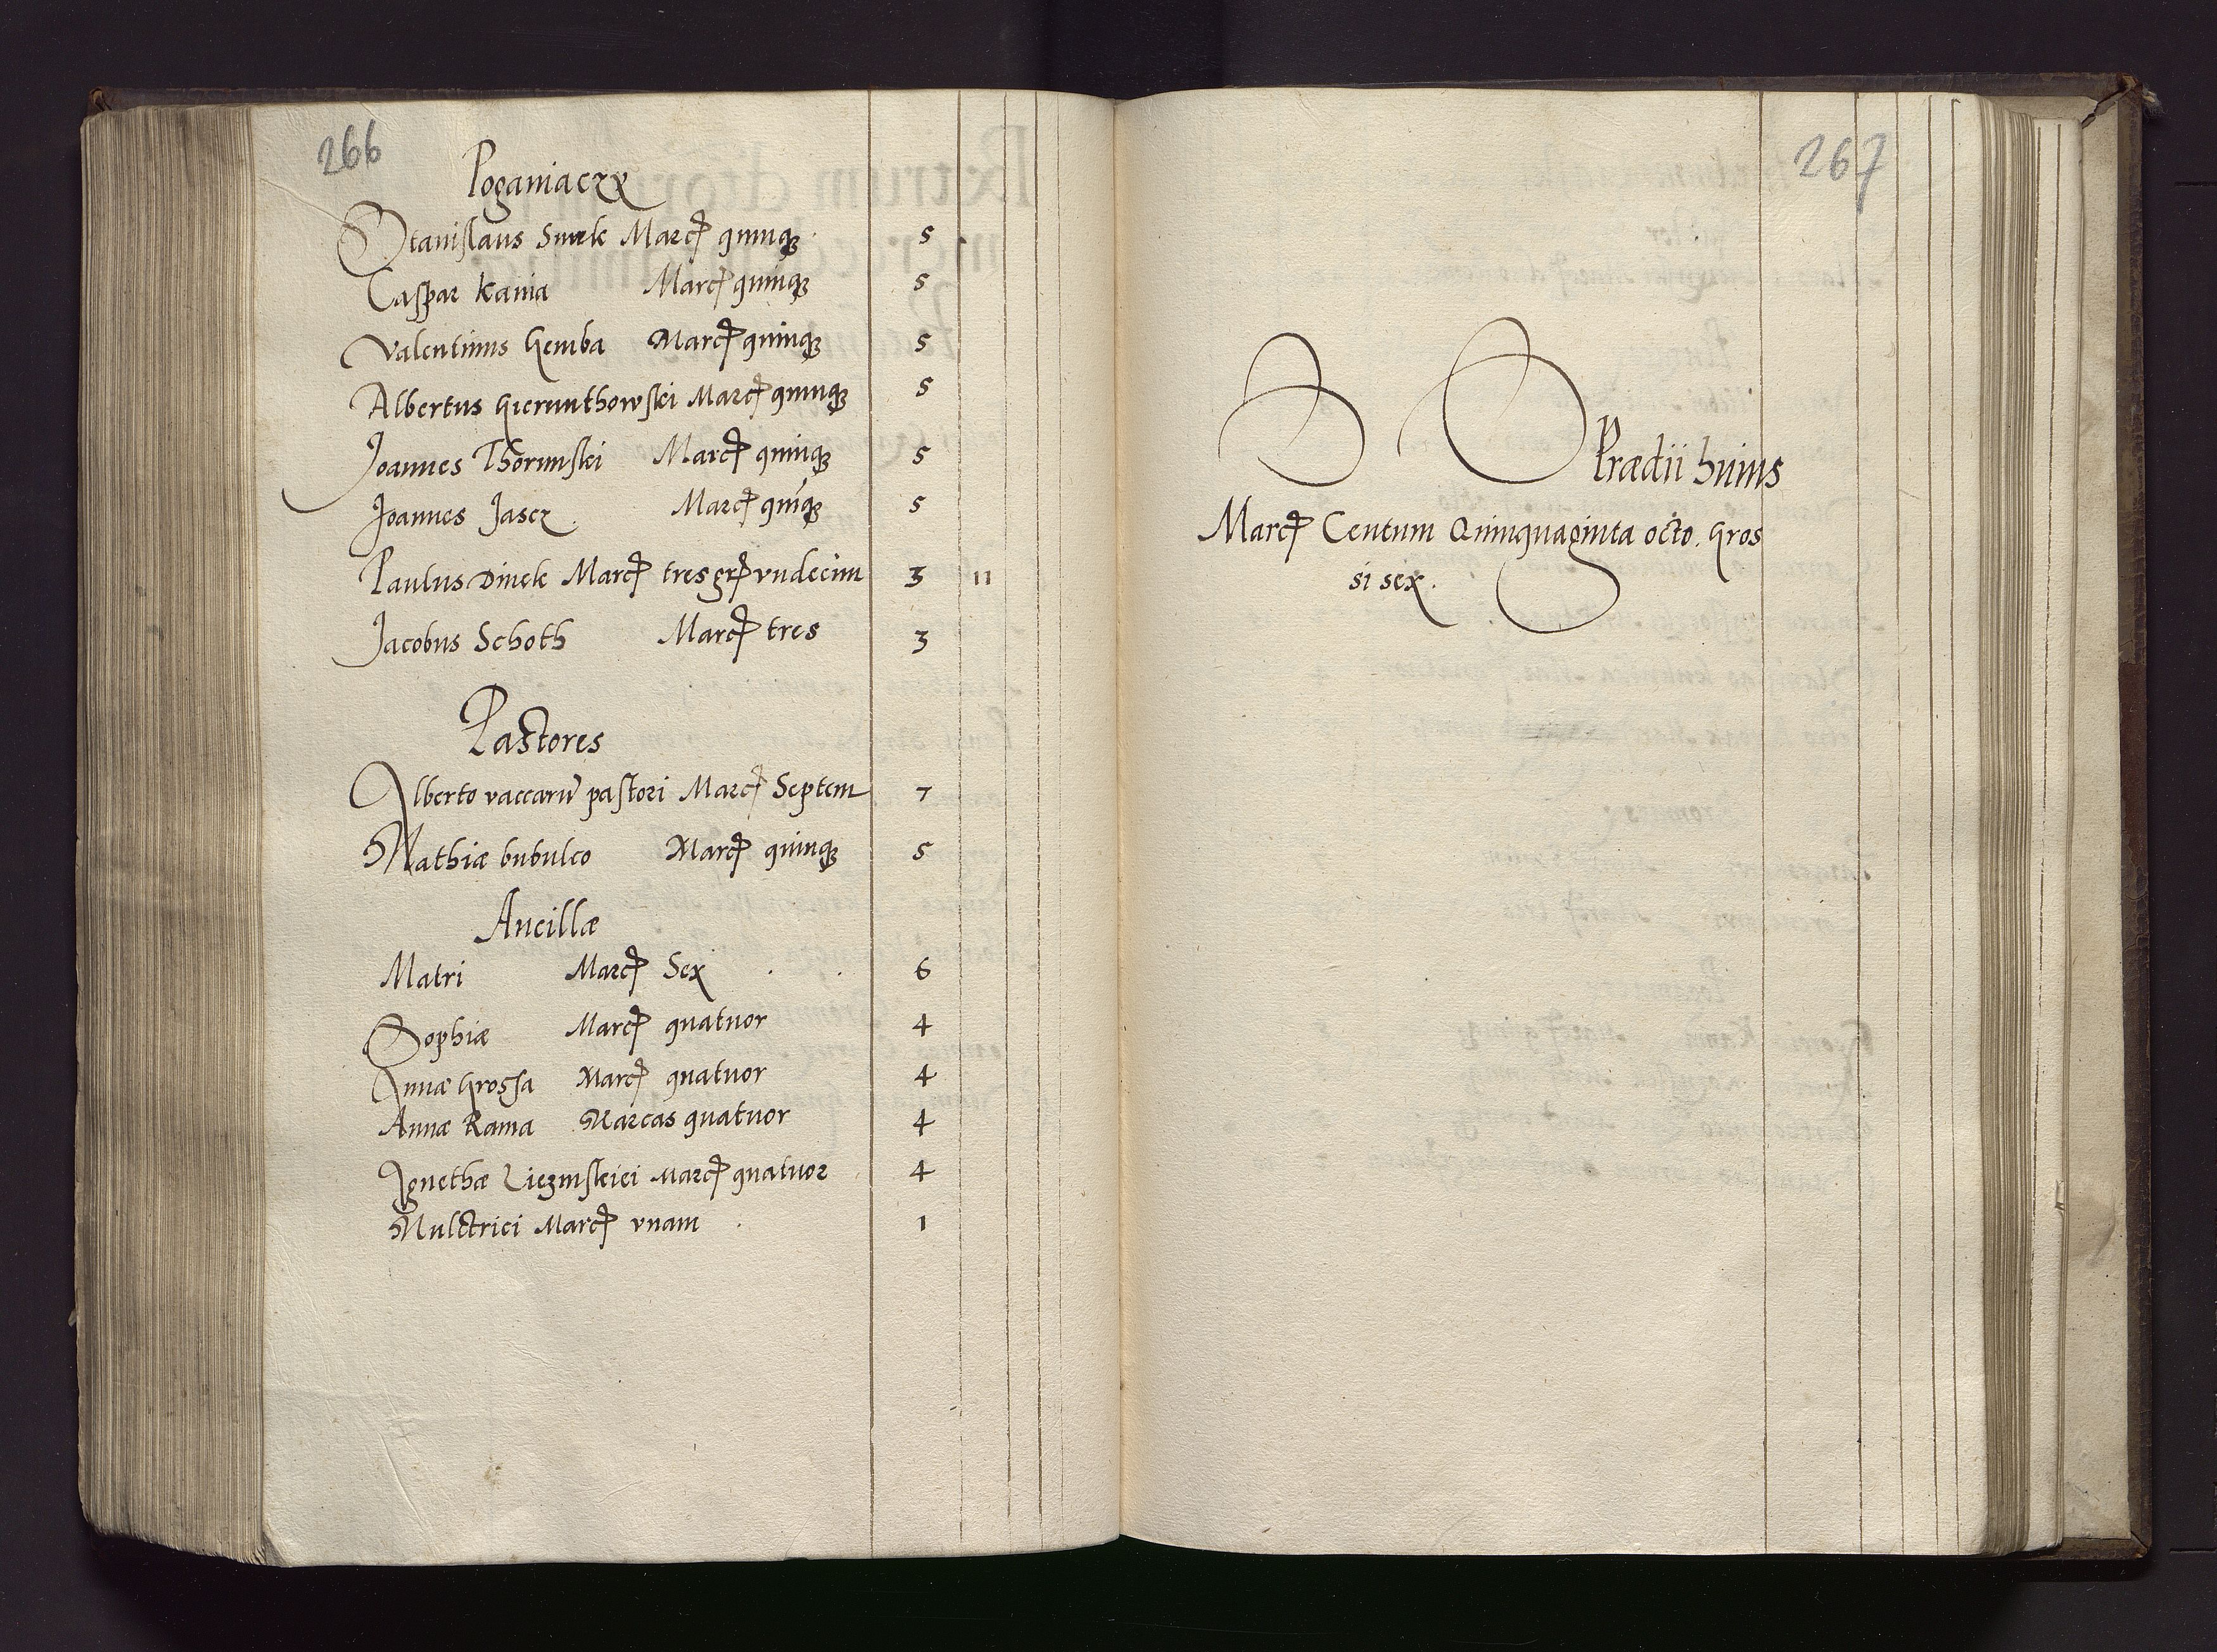 266
Poganiaczy
Stanislaus Smek Marcꝭ quinqꝫ 5
Caspar Kania Marcꝭ quinqꝫ 5
Valentinus Gemba Marcꝭ quinqꝫ 5
Albertus Gierunthowskei Marcꝭ quinqꝫ 5
Joannes Thorunskei Marcꝭ quinqꝫ 5
Joannes Jascz Marcꝭ quīqꝫ 5
Paulus Dinek Marcꝭ tres grꝭ vndecim 3 11
Jacobus Schoth Marcꝭ tres 3
Pastores
Alberto vaccarū pastori Marcꝭ Septem 7
Mathiæ bubulco Marcꝭ quinqꝫ 5
Ancillæ
Matri Marcꝭ Sex 6
Sophiæ Marcꝭ quatuor 4
Annæ Grossa Marcꝭ quatuor 4
Annæ Rama Marcas quatuor 4
Agnethæ Liezinskiei Marcꝭ quatuor 4
Mulctrici Marcꝭ vnam 1
267
Prædii huius
Marcꝭ Centum Quinquaginta octo. Gros
si sex.